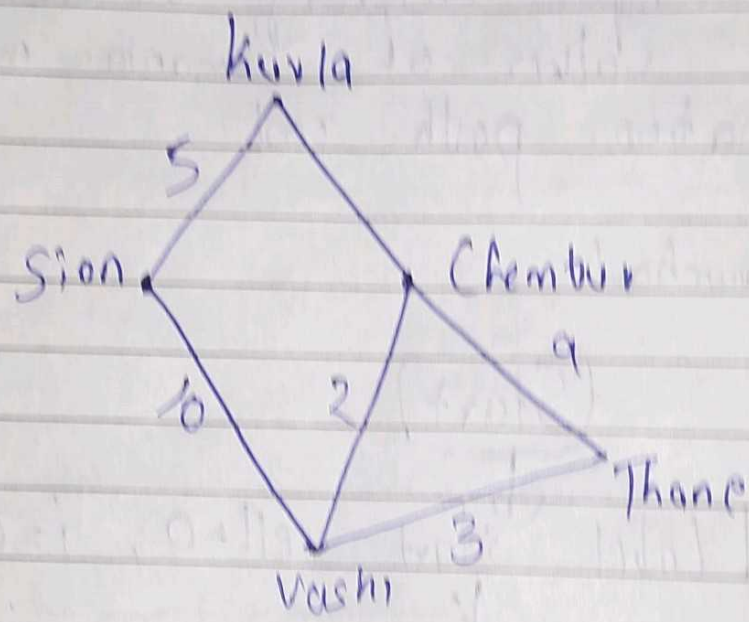 Kurla
5
Sion
Chembur
9
10
2
Thane
3
Vashi